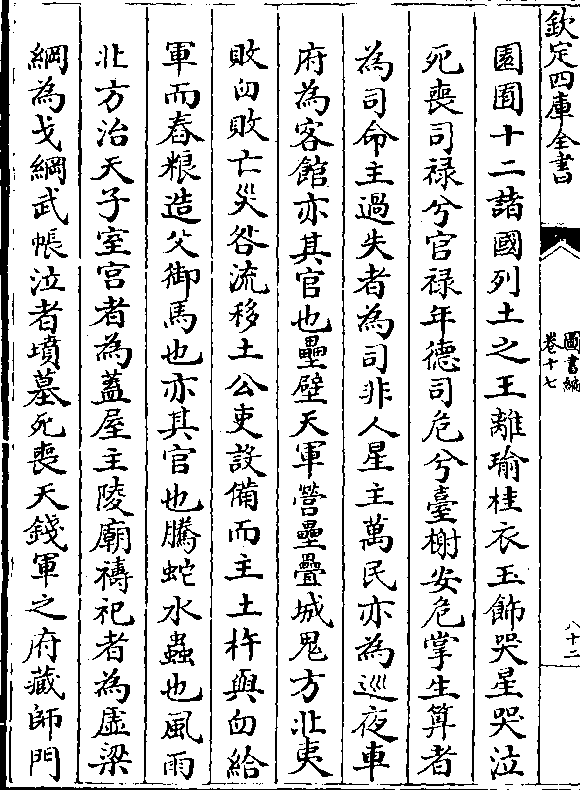 欽定四庫全書
圖書編
卷十七
八十二
園囿十二諸國列土之王離瑜桂衣玉飾哭星哭泣
死喪司禄兮官禄年德司危兮臺榭安危掌生算者
為司命主過失者為司非人星主萬民亦為巡夜車
府為客館亦其官也壘壁天軍營壘疊城鬼方北夷
敗臼敗亡災咎流移土公吏設備而主土杵與臼給
軍而舂粮造父御馬也亦其官也騰蛇水蟲也風雨
北方治天子室宮者為蓋屋主陵廟禱祀者為虛梁
綱為戈綱武帳泣者墳墓死喪天錢軍之府藏師門